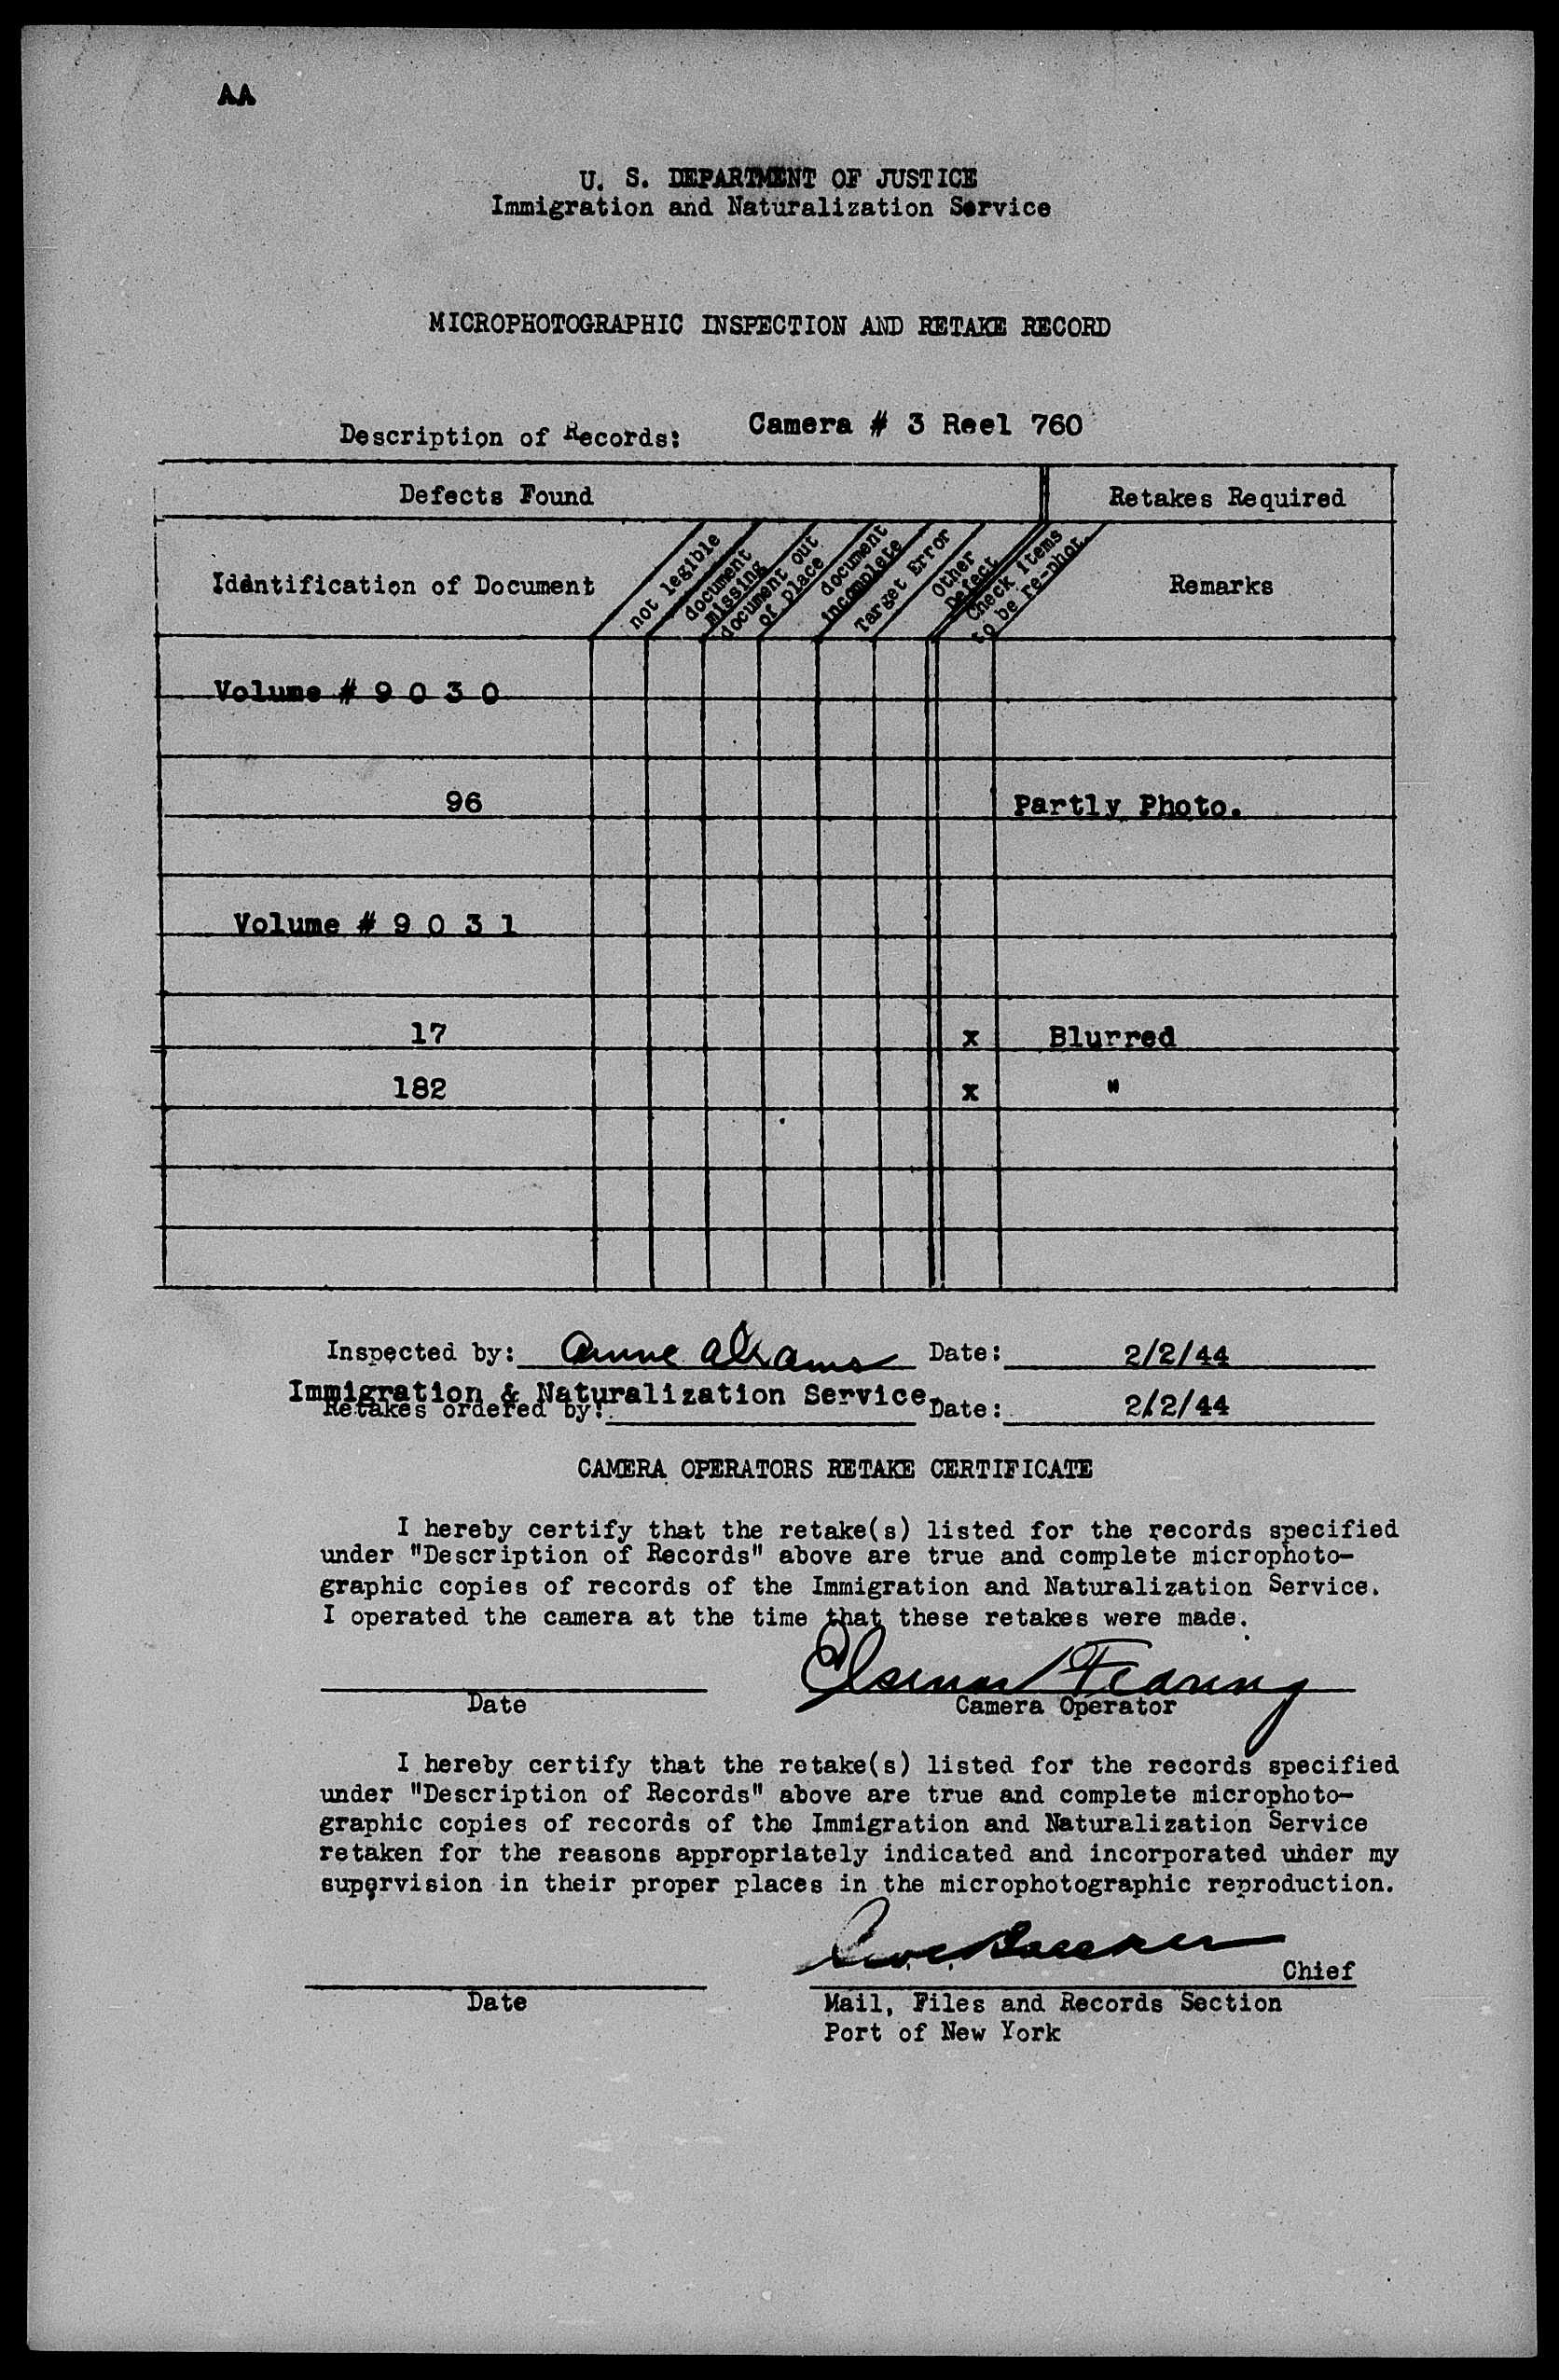 AA
U. S. DEPARTMENT OF JUSTICE
Immigration and Naturalization Service
MICROPHOTOGRAPHIC INSPECTION AND RETAKE RECORD
Description of Records: Camera # 3 Reel 760
Defects Found Retakes Required
Idantification of Document
not legible
document missing
document out of place
document incomplete
Target Error
Other Defect
Check items to be re-phot.
Remarks
Volume # 9 0 3 0
96 Partly Photo.
Volume # 9 0 3 1
17 x Blurred
182 x "
Inspected by: Anne Abrams Date: 2/2/44
Immigration & Naturalization Service.
Retakes ordered by: Date: 2/2/44
CAMERA OPERATORS RETAKE CERTIFICATE
I hereby certify that the retake(s) listed for the records specified
under "Description of Records" above are true and complete microphoto-
graphic copies of records of the Immigration and Naturalization Service.
I operated the camera at the time that these retakes were made.
Fearing
Date Camera Operator
I hereby certify that the retake(s) listed for the records specified
under "Description of Records" above are true and complete microphoto-
graphic copies of records of the Immigration and Naturalization Service
retaken for the reasons appropriately indicated and incorporated under my
supervision in their proper places in the microphotographic reproduction.
Chief
Date Mail, Files and Records Section
Port of New York